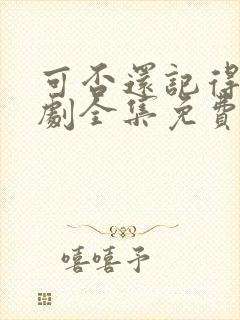 可否還記得
劇全集免費
嘻嘻予